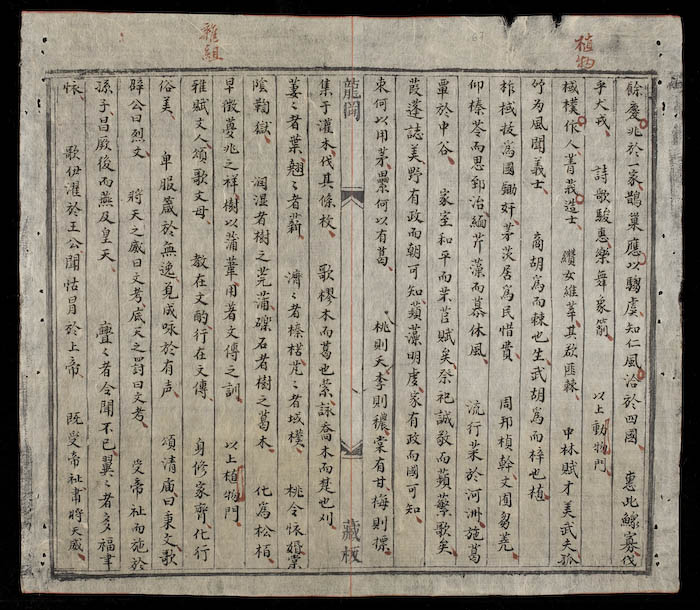 植物
雜組
餘慶兆於一家鵲巢應以騶虞知仁風洽於四國 惠此鰥寡伐
乎大戎 詩歌駿惠樂舞象箾 以上動物門
棫樸作人菁莪造士 纘女維莘其欲匪棘 中林賦才美武夫孤
竹为風聞義士 商胡為而棘也生武胡為而梓也植
柞棫拔為國鋤奸茅茨居為民惜費 周邦楨幹文囿芻蕘
仰榛苓而思郅治緬芹藻而慕休風 流行菜於河洲施葛
覃於中谷 家室和平而芣苢賦矣祭祀誠敬而蘋蘩歌矣
葭蓬誌美野有政而朝可知蘋藻明虔家有政而國可知
束何以用茅纍何以有葛 桃則夭李則穠棠有甘梅則摽
龍岡 藏板
集于灌木伐其條枚 歌樛木而葛也縈詠喬木而楚也刈
萋〻者葉翹〻者薪 濟〻者榛楛芃〻者域樸 桃令怀婚棠
陰鞫獄 潤湿者樹之芫蒲礫石者樹之葛木 化為松栢
早徵夢兆之祥樹以蒲葦用著文傳之訓 以上植物門
雅賦文人頌歌文母 教在文酌行在文傳 身修家齊化行
俗美 卑服箴於無逸咸咏於有声 頌清庙曰秉文歌
辟公曰烈文 將天之威曰文考咸天之罰曰文考 受帝祉而施於
孫子昌厥後而燕及皇天 亹〻者令聞不已翼〻者多福聿
怀 歌伊濯於王公聞怙冒於上帝 既受帝祉肅將天威